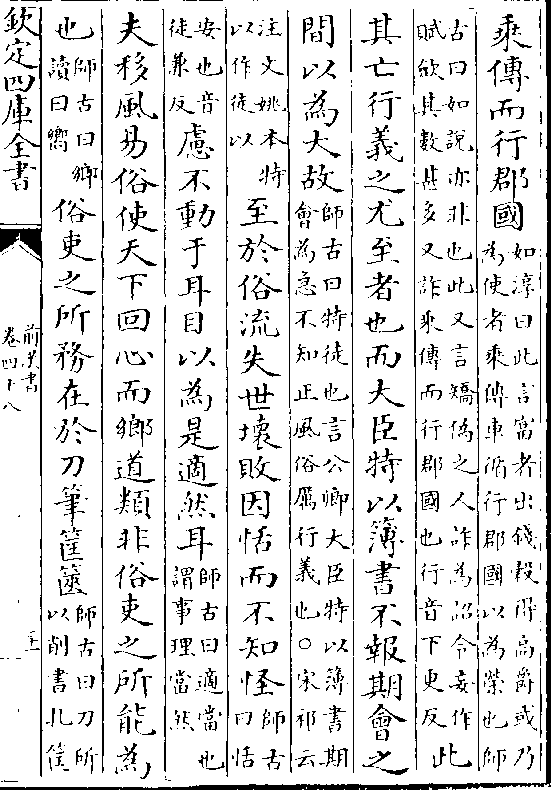 乘傳而行郡國如淳曰此言富者出錢穀得高爵或乃為使者乘傳車循行郡國以為榮也師
古曰如説亦非也此又言矯偽之人詐為詔令妄作賦斂其數甚多又詐乘傳而行郡國也行音下更反此
其亡行義之尤至者也而大臣特以簿書不報期會之
間以為大故師古曰特徒也言公卿大臣特以簿書期會為急不知正風俗厲行義也○宋祁云
注文姚本特以作徒以至於俗流失世壞敗因恬而不知怪師古曰恬
安也音徒兼反慮不動于耳目以為是適然耳師古曰適當也謂事理當然
夫移風易俗使天下回心而鄉道類非俗吏之所能為
也師古曰鄉讀曰嚮俗吏之所務在於刀筆筐篋師古曰刀所以削書札筐
欽定四庫全書
前漢書
卷四十八